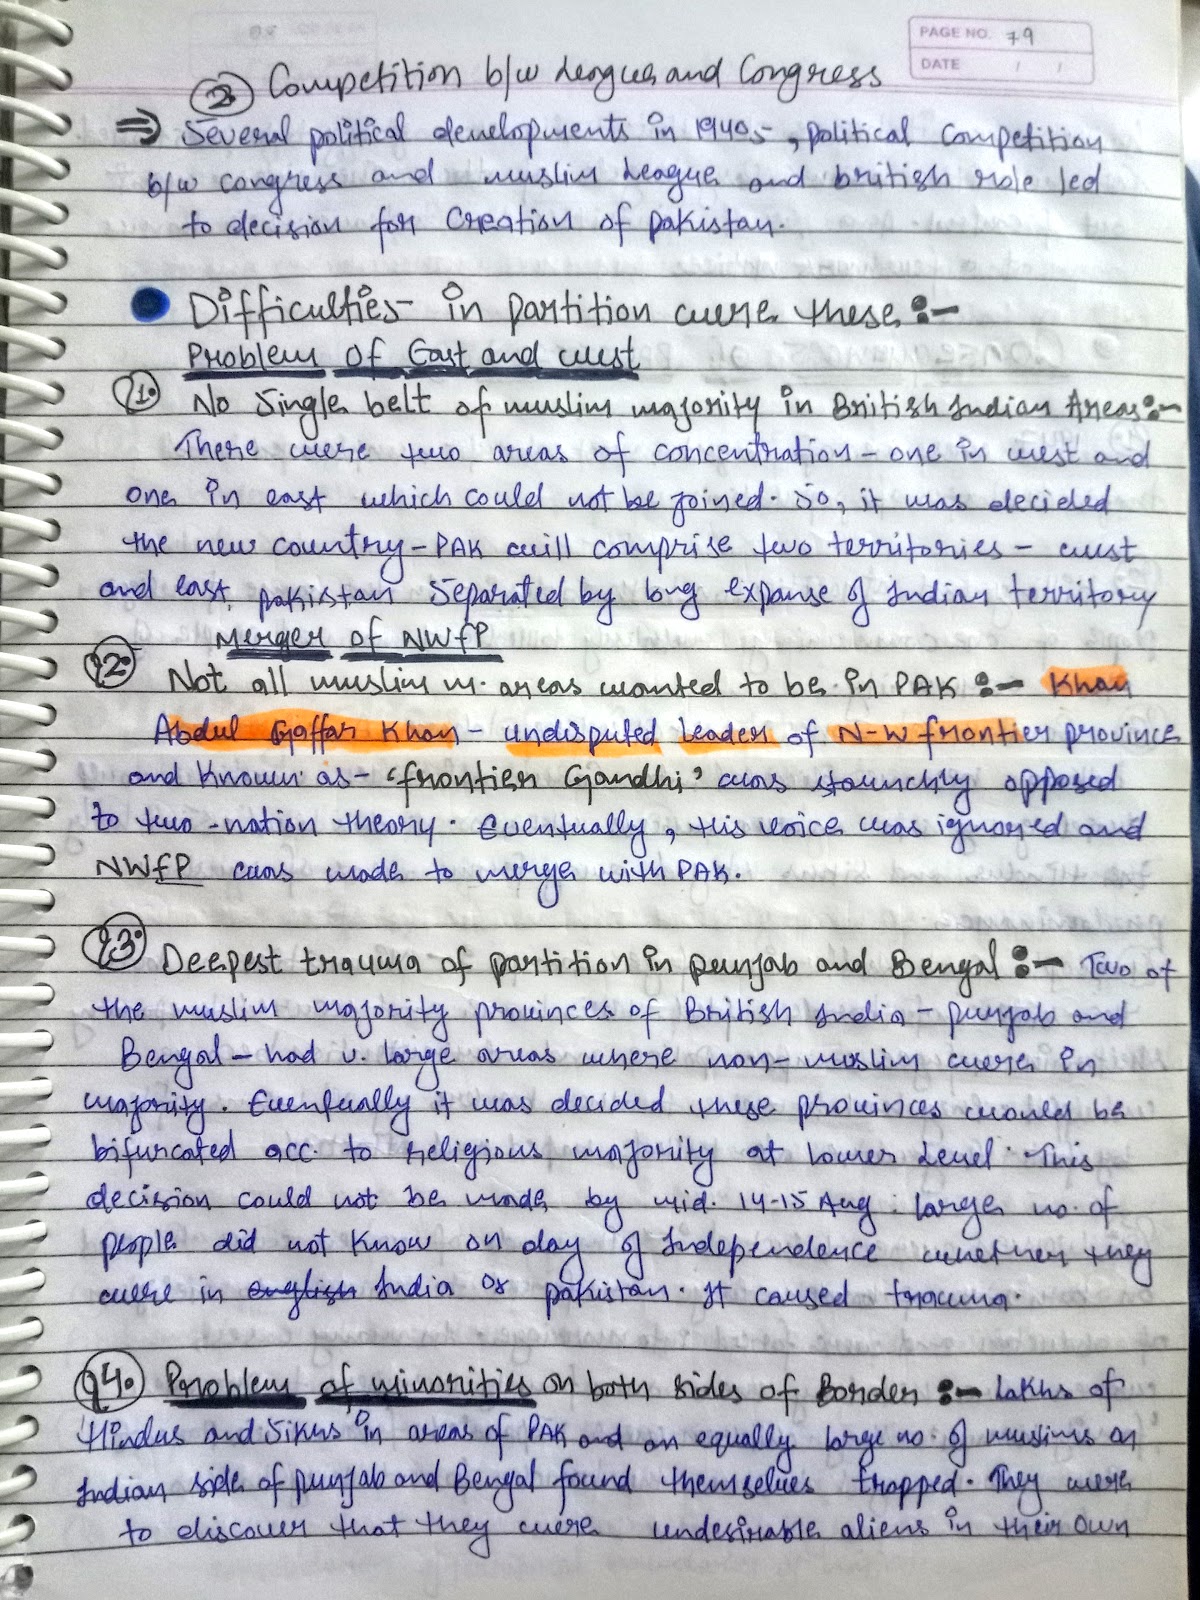 PAGE NO. 79
DATE / /
2. Competition b/w League and Congress
⇒ Several political developments in 1940s, political competition
b/w congress and muslim League and british role led
to decision for creation of pakistan.
Difficulties in partition were these :-
Problem of East and west
Q1. No single belt of muslim majority in British Indian Areas :-
There were two areas of concentration - one in west and
one in east which could not be joined. So, it was decided
the new country - PAK will comprise two territories - west
and east pakistan separated by long expanse of Indian territory
Merger of NWFP
Q2. Not all muslim m. areas wanted to be in PAK :- Khan
Abdul Gaffar Khan - undisputed leader of N-W frontier province
and known as - 'frontier Gandhi' was staunchly opposed
to two-nation theory. Eventually, his voice was ignored and
NWFP was made to merge with PAK.
Q3. Deepest trauma of partition in punjab and Bengal :- Two of
the muslim majority provinces of British India - punjab and
Bengal - had v. large areas where non-muslim were in
majority. Eventually it was decided these provinces would be
bifurcated acc. to religious majority at lower level. This
decision could not be made by mid. 14-15 Aug : large no. of
people did not know on day of Independence whether they
were in english India or pakistan. It caused trauma.
Q4. Problem of minorities on both sides of Border :- lakhs of
Hindus and Sikhs in areas of PAK and an equally large no. of muslims on
Indian side of punjab and Bengal found themselves trapped. They were
to discover that they were undesirable aliens in their own